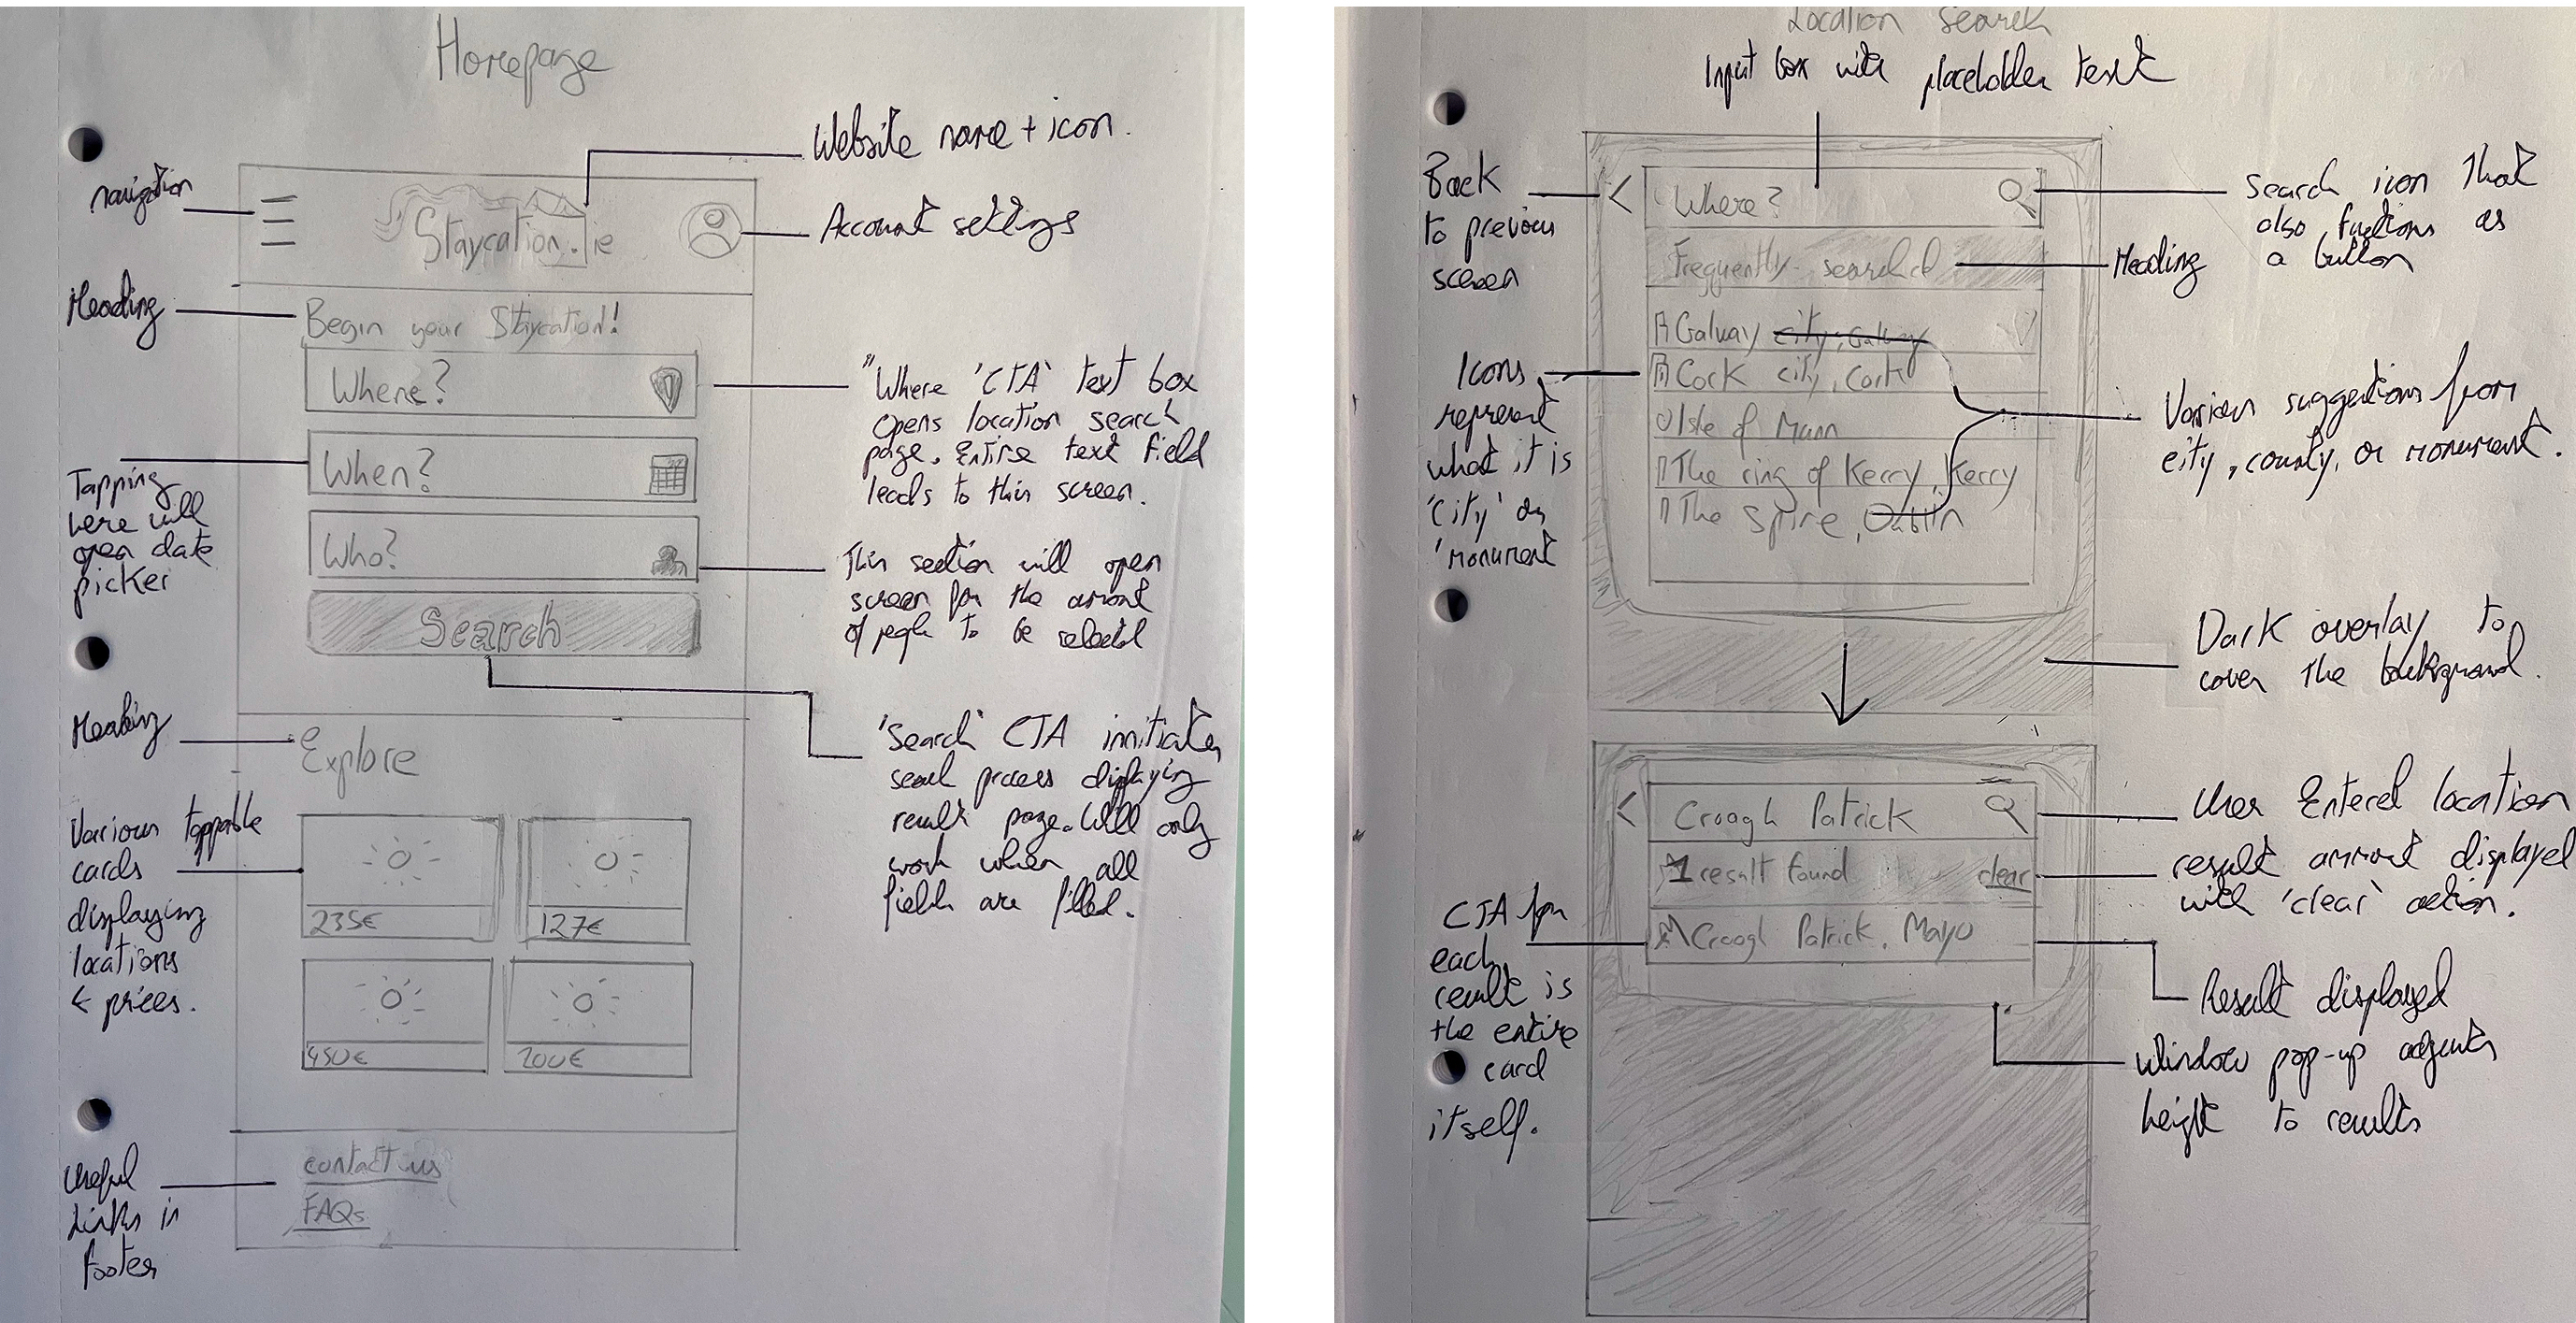 Homepage
Website name + icon.
navigation
Staycation.ie
Account settings
Heading
Begin your Staycation!
Where?
"Where 'CTA' text box
opens location search
page. Entire text field
leads to this screen.
When?
Tapping
here will
open date
picker
Who?
This section will open
screen for the amount
of people to be selected
Search
'Search' CTA innitiates
search process displaying
result page. Will only
work when all
fields are filled.
Heading
Explore
Various tappable
cards
displaying
locations
& prices.
235€
127€
450€
200€
Useful
Links in
footer
contact us
FAQs
Location Search
Input box with placeholder text
Back
to previous
screen
Where?
Search icon that
also functions as
a button
Frequently searched
Heading
Galway city, Galway
Cork city, Cork
Isle of Mann
The ring of Kerry, Kerry
The Spire, Dublin
Icons
represent
what it is
'City' or
'monument
Various suggestions from
city, county, or monument.
Dark overlay to
cover the background.
Croagh Patrick
User Entered location
1 result found
clear
result ammount displayed
with 'clear' action.
Croagh Patrick, Mayo
CTA for
each
result is
the entire
card
itself.
Result displayed
Window pop-up
height to results